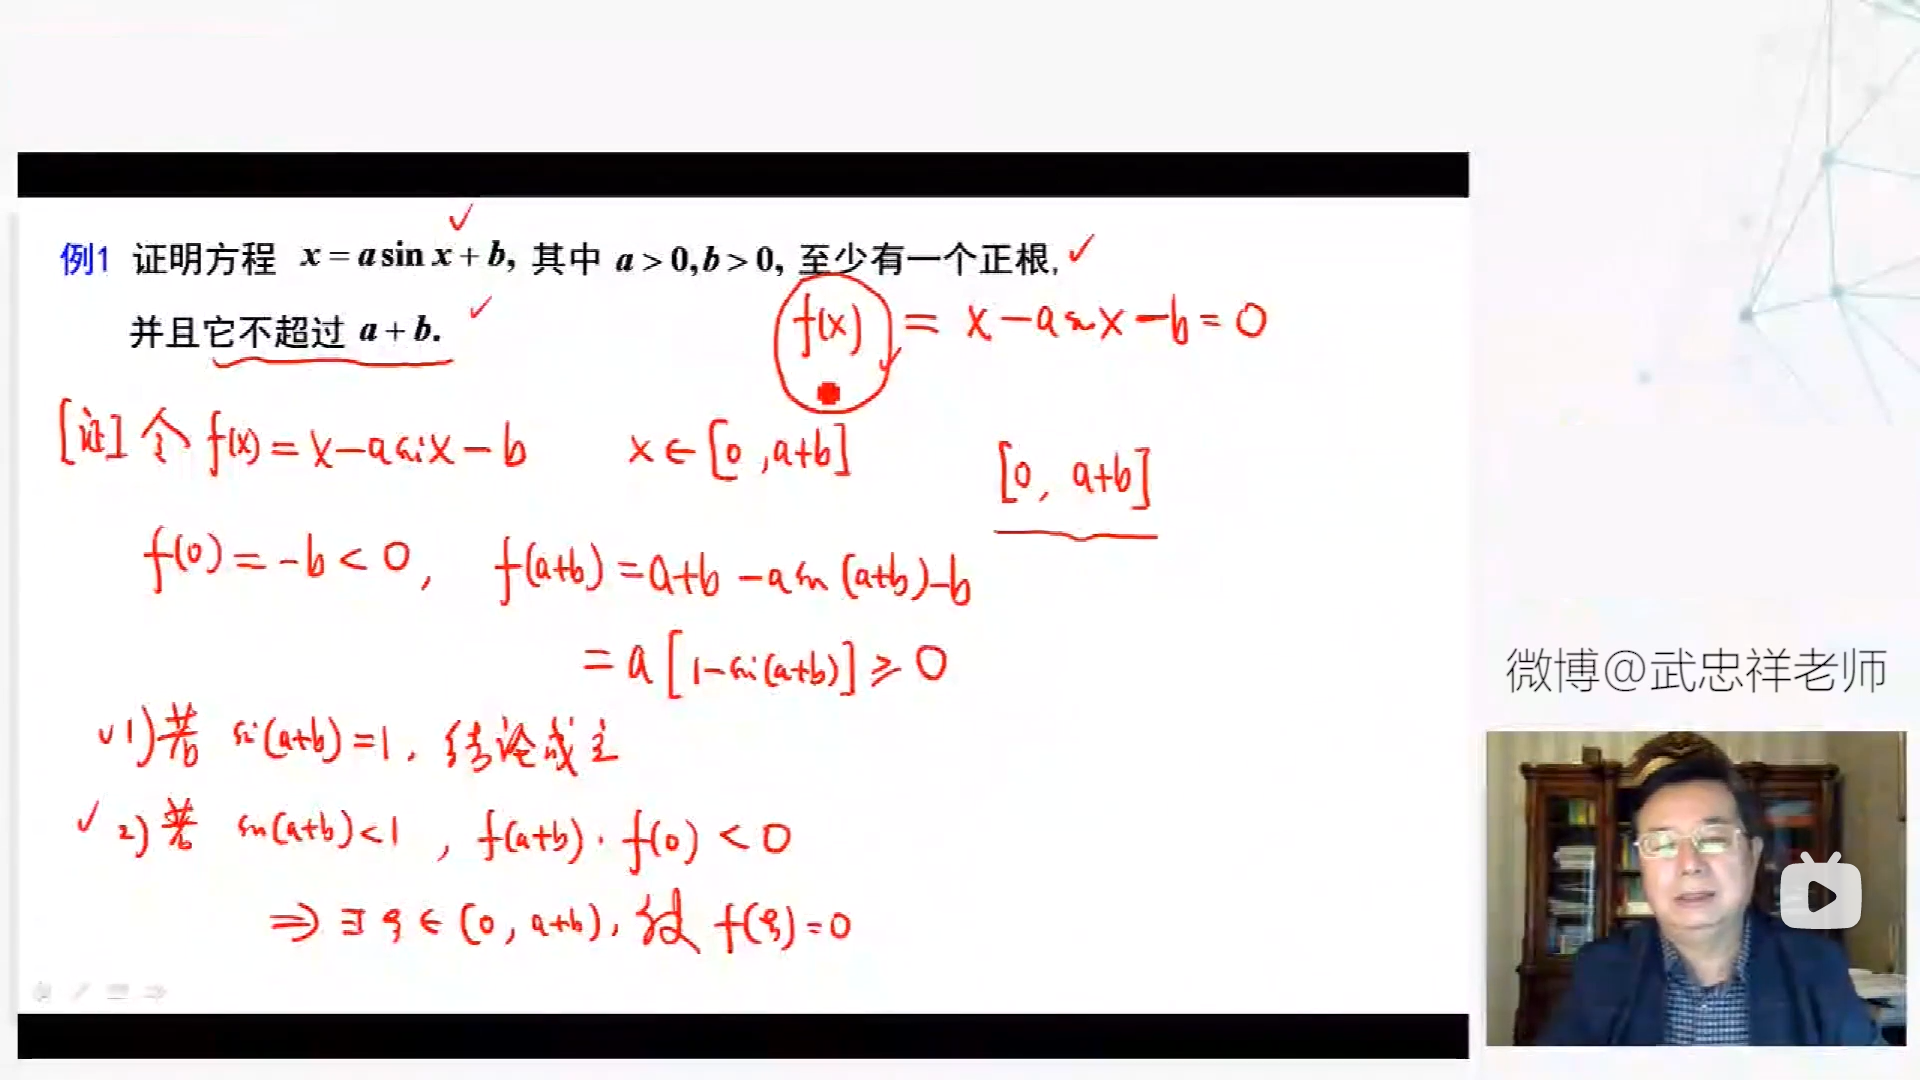 例1 证明方程 x = a sin x + b, 其中 a > 0, b > 0, 至少有一个正根,
并且它不超过 a + b.
f(x) = x - a sin x - b = 0
[证] 令 f(x) = x - a sin x - b x ∈ [0, a+b]
[0, a+b]
f(0) = -b < 0, f(a+b) = a+b - a sin (a+b) - b
= a [1 - sin(a+b)] ≥ 0
1) 若 sin(a+b) = 1, 结论成立
2) 若 sin(a+b) < 1, f(a+b) · f(0) < 0
⇒ ∃ ξ ∈ (0, a+b), 使 f(ξ) = 0
微博@武忠祥老师